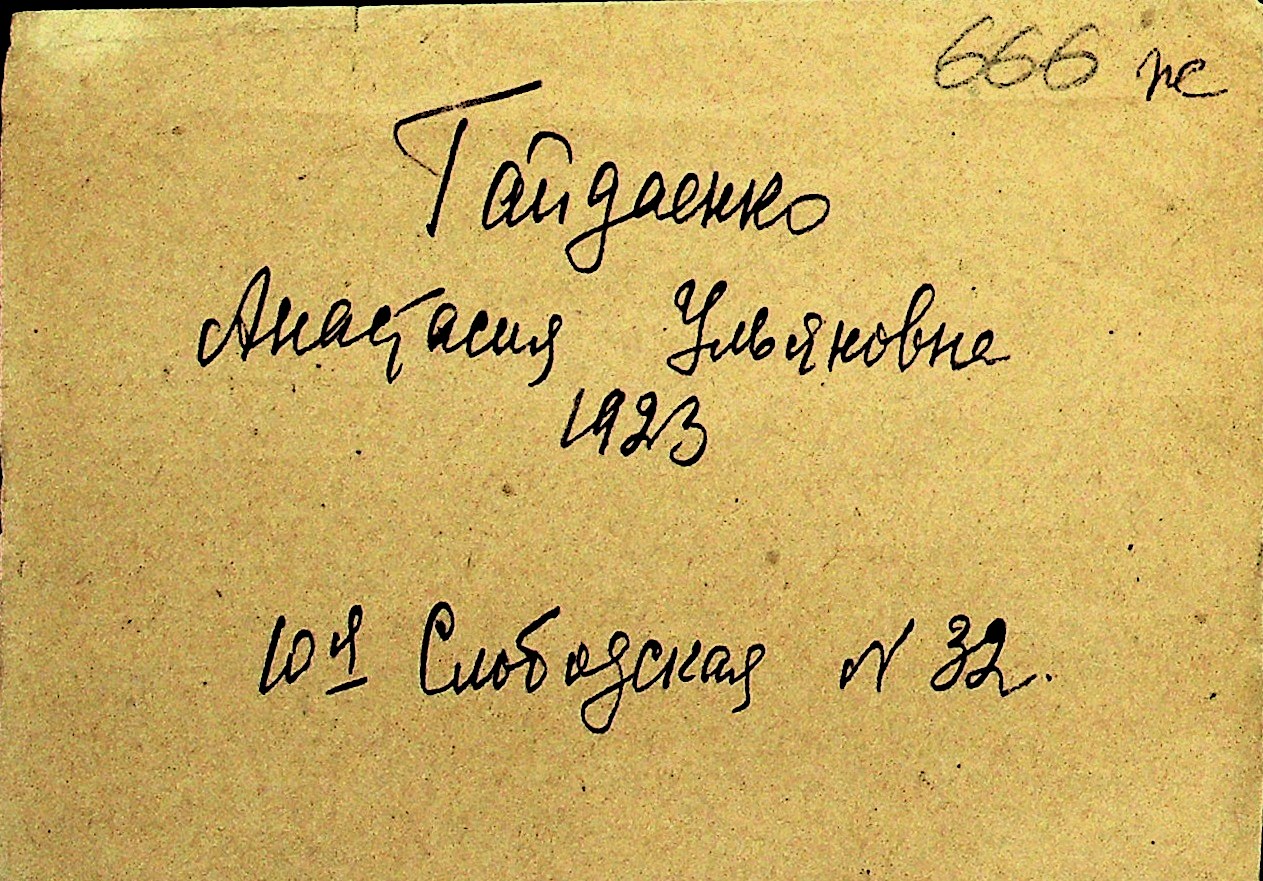 666 пс
Гайдаенко
Анастасия Ульяновна
1923
10я Слободская N 32.